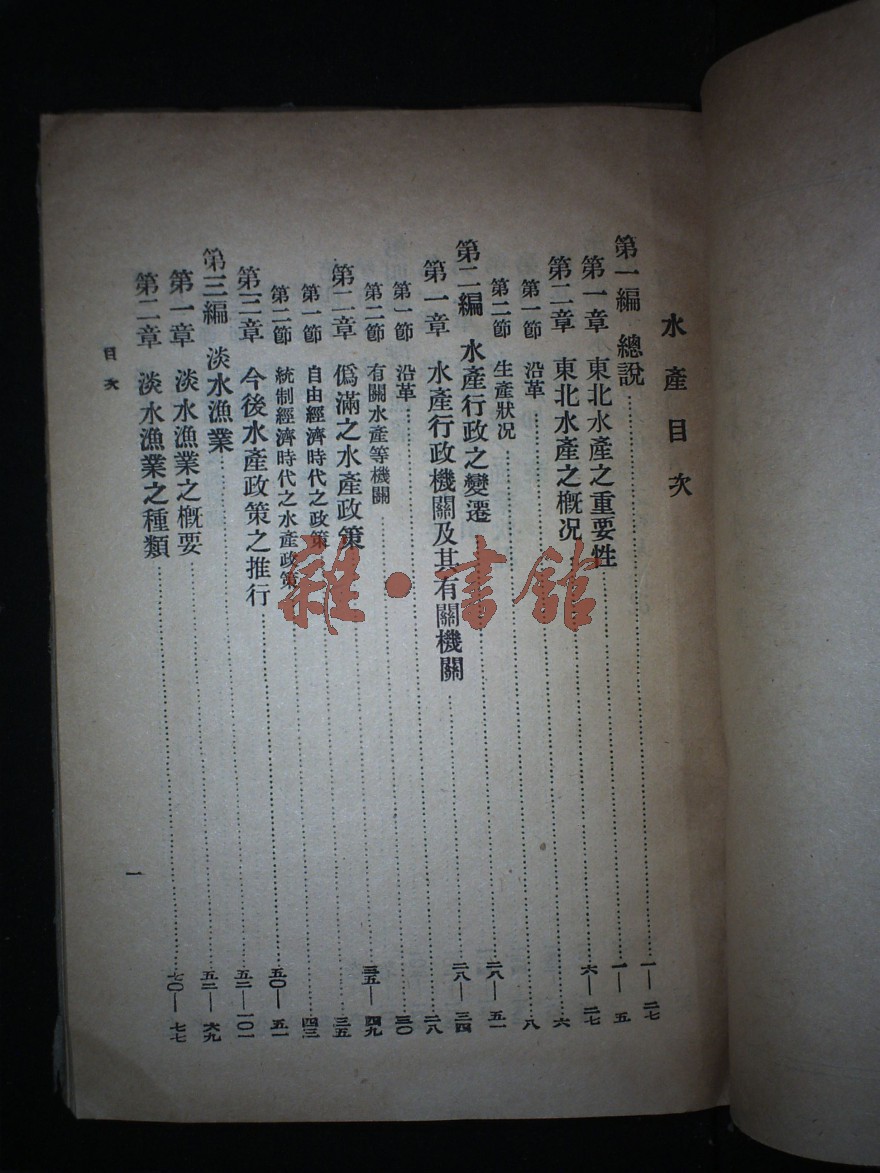 水產目次
第一編 總說 一—二七
第一章 東北水產之重要性 一—五
第二章 東北水產之概況 六—二七
第一節 沿革 六
第二節 生產狀況 八
第二編 水產行政之變遷 二八—五一
第一章 水產行政機關及其有關機關 二八—三四
第一節 沿革 二八
第二節 有關水產等機關 三〇
第二章 僞滿之水產政策 三五—四九
第一節 自由經濟時代之政策 三五
第二節 統制經濟時代之水產政策 四三
第三章 今後水產政策之推行 五〇—五一
第三編 淡水漁業 五二—一〇一
第一章 淡水漁業之概要 五二—六九
第二章 淡水漁業之種類 七〇—七七
目次
一
雜·書館